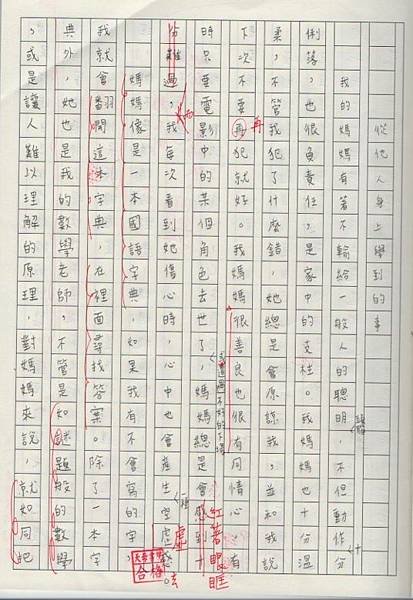 從他人身上學到的事
我的媽媽有著不輸給一般人的聰明，不但動作
俐落，也很負責任，是家中的支柱。我媽媽也十分溫
柔，不管我犯了什麼錯，她總是會原諒我，並和我說
下次不要再犯就好。我媽媽很善良也很有同情心，有
再
時只要電影中的某個角色去世了，媽媽總是會感到十
紅著眼眶
份難過，我每次看到她傷心時，心中也會產生空虛感。
虛
媽媽像是一本國語字典，如果我有不會寫的字，
我就會翻開這本字典，在裡面尋找答案。除了一本字
合格
典外，她也是我的數學老師，不管是如謎題般的數學
，或是讓人難以理解的原理，對媽媽來說，就如同把